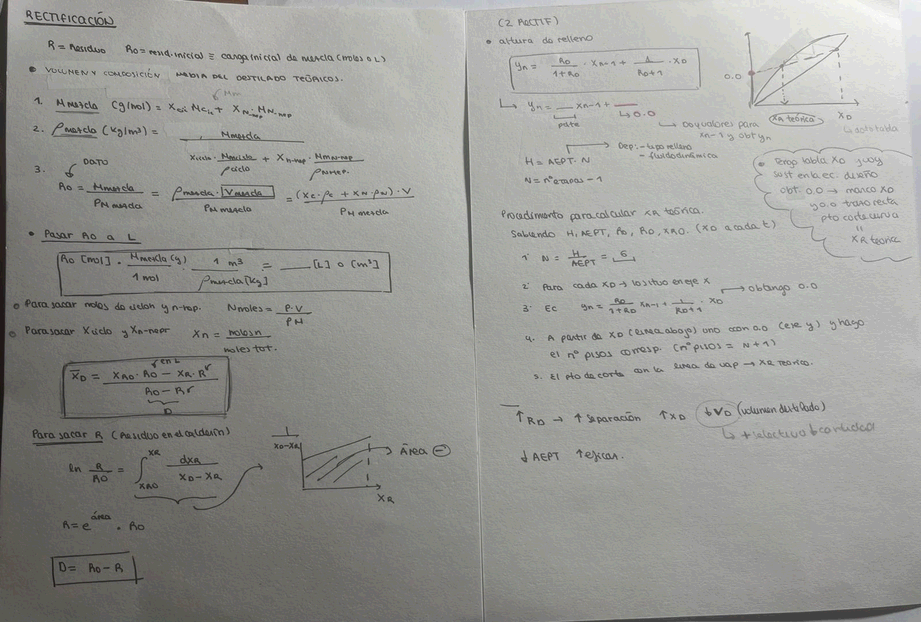 RECTIFICACIÓN
R = Residuo R0 = resid. inicial ≡ carga inicial de mezcla (moles o L)
• VOLUMEN Y COMPOSICIÓN MEDIA DEL DESTILADO TEÓRICOS.
1. Mmezcla (g/mol) = Xcicl · Mcic + XN-hep · MN-hep
2. ρmezcla (kg/m³) = Mmezcla / (Xciclo · Mciclo/ρciclo + Xn-hep · MmN-hep/ρNHEP.)
3. DATO
R0 = Mmezcla / PM mezcla = ρmezcla · Vmezcla / PM mezcla = (Xc · ρc + XN · ρN) · V / PM mezcla
• Pasar R0 a L
R0 [mol] · Mmezcla (g) / 1 mol · 1 m³ / ρmezcla [kg] = ___ [L] o [m³]
• Para sacar moles de cicloh y n-hep. Nmoles = ρ·V / PM
• Para sacar Xciclo y Xn-hep Xn = moles n / moles tot.
en L
X̄D = (XR0 · R0 − XR · R) / (R0 − R)
D
Para sacar R (Residuo en el calderín)
ln R/R0 = ∫ XR0 XR dXR / (XD − XR)
1 / (XD − XR)
Área ⊖
XR
R = e^área · R0
D = R0 − R
(2 RECTIF)
• altura de relleno
yn = R0 / (1+R0) · Xn+1 + 1 / (R0+1) · XD
↳ yn = __ Xn-1 + __
pdte
↳ 0.0
↳ Doy valores para
xn-1 y obt yn
0.0
XR teórica
XD
↳ dato tabla
H = AEPT · N
Dep: - tipo relleno
- fluidodinámica
N = nº etapas − 1
• Tengo tabla XD y voy
sust en la ec. diseño
obt. 0.0 → marco XD
y 0.0 trazo recta
pto corte curva
=
XR teórica
Procedimiento para calcular XR teórica.
Sabiendo H, AEPT, R0, RD, XR0. (XD a cada t)
1º N = H / AEPT = 6
2º Para cada XD → lo situo en eje X
3º Ec yn = R0 / (1+R0) Xn-1 + 1 / (R0+1) · XD → obtengo 0.0
4. A partir de XD (linea abajo) uno con 0.0 (eje y) y hago
el nº pisos corresp. (nº pisos = N+1)
5. El pto de corte con la linea de vap → XR teórico.
↑ RD → ↑ separación ↑ XD ↓ VD (volumen destilado)
↳ + selectivo ↓ cantidad
↓ AEPT ↑ eficac.